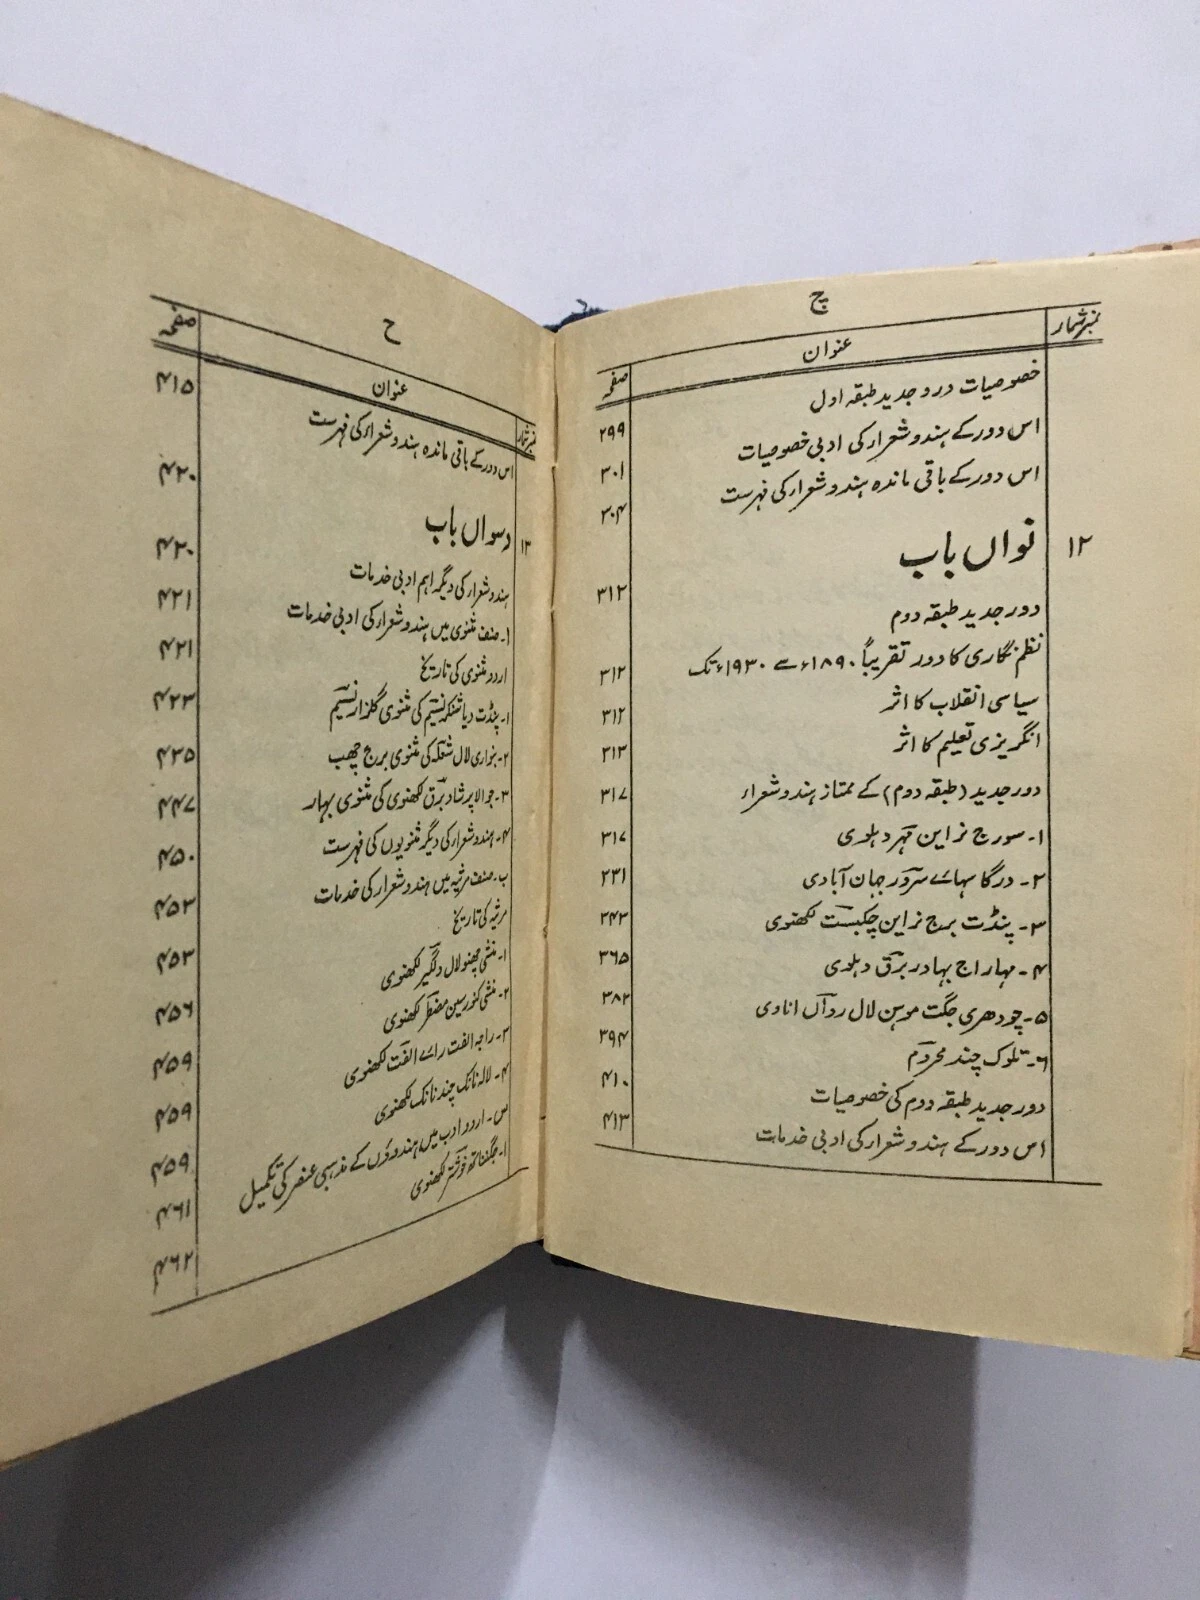 چ
نمبر شمار عنوان صفحہ
خصوصیات درد جدید طبقہ اول ۲۹۹
اس دور کے ہندو شعرار کی ادبی خصوصیات ۳۰۱
اس دور کے باقی ماندہ ہندو شعرار کی فہرست ۳۰۴
۱۲ نواں باب ۳۱۲
دور جدید طبقہ دوم
نظم نگاری کا دور تقریباً ۱۸۹۰ء سے ۱۹۳۰ء تک ۳۱۲
سیاسی انقلاب کا اثر ۳۱۲
انگریزی تعلیم کا اثر ۳۱۳
دور جدید (طبقہ دوم) کے ممتاز ہندو شعراء ۳۱۷
۱۔ سورج نراین مہر دہلوی ۳۱۷
۲۔ درگا سہائے سرور جہان آبادی ۳۳۱
۳۔ پنڈت برج نراین چکبست لکھنوی ۳۴۳
۴۔ مہاراج بہادر برق دہلوی ۳۶۵
۵۔ چودھری جگت موہن لال رواں اناوی ۳۸۲
۶۔ تلوک چند محروم ۳۹۴
دور جدید طبقہ دوم کی خصوصیات ۴۱۰
اس دور کے ہندو شعرار کی ادبی خدمات ۴۱۳
ح
نمبر شمار عنوان صفحہ
اس دور کے باقی ماندہ ہندو شعراء کی فہرست ۴۱۵
۱۳ دسواں باب ۴۲۰
ہندو شعرار کی دیگر اہم ادبی خدمات ۴۲۰
ا۔ صنف مثنوی میں ہندو شعراء کی ادبی خدمات ۴۲۱
اردو مثنوی کی تاریخ ۴۲۱
۱۔ پنڈت دیا شنکر نسیم کی مثنوی گلزار نسیم ۴۲۳
۲۔ بنواری لال شعلہ کی مثنوی برج چھب ۴۳۵
۳۔ جوالا پرشاد برق لکھنوی کی مثنوی بہار ۴۴۷
۴۔ ہندو شعرار کی دیگر مثنویوں کی فہرست ۴۵۰
ب۔ صنف مرثیہ میں ہندو شعرار کی خدمات ۴۵۳
مرثیہ کی تاریخ ۴۵۳
۱۔ منشی چھنو لال دلگیر لکھنوی ۴۵۶
۲۔ منشی کنور سین مضطر لکھنوی ۴۵۹
۳۔ راجہ الفت رائے الفت لکھنوی ۴۵۹
۴۔ لالہ نانک چند نانک لکھنوی ۴۵۹
س۔ اردو ادب میں ہندوؤں کے مذہبی عنصر کی تکمیل ۴۶۱
۱۔ جگنناتھ خوشتر لکھنوی ۴۶۲